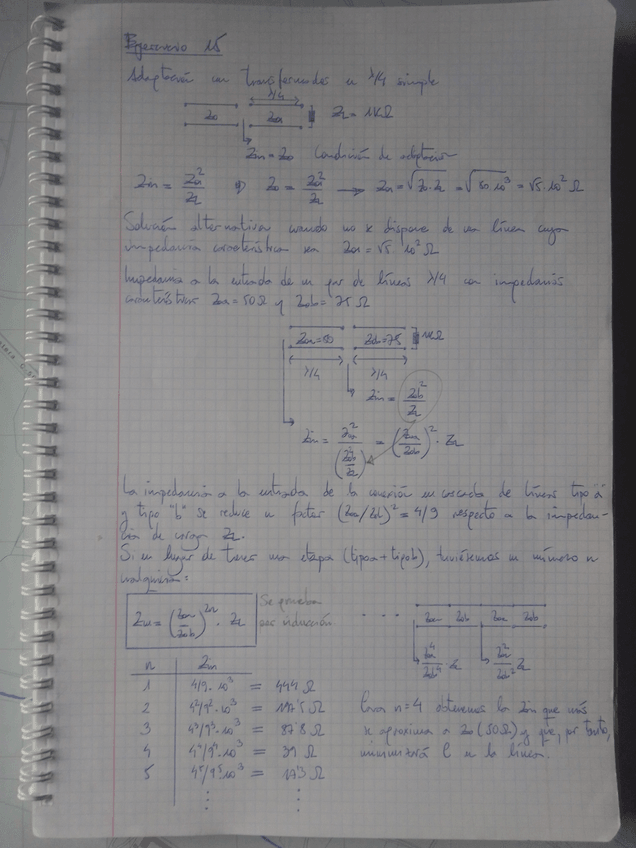 Ejercicio 15
Adaptación con transformador en λ/4 simple
λ/4
Z0 Z0a ZL = 1KΩ
Zin = Z0 Condición de adaptación
Zin = Z0a²/ZL ⇒ Z0 = Z0a²/ZL → Z0a = √Z0·ZL = √50·10³ = √5·10² Ω
Solución alternativa cuando no se dispone de una línea cuya
impedancia característica sea Z0a = √5·10² Ω
Impedancia a la entrada de un par de líneas λ/4 con impedancias
características Z0a = 50Ω y Z0b = 75 Ω
Z0a=50 Z0b=75 1KΩ
λ/4 λ/4
Zin = Z0b²/ZL
Zin = Z0a²/(Z0b²/ZL) = (Z0a/Z0b)² · ZL
La impedancia a la entrada de la conexión en cascada de líneas tipo "a"
y tipo "b" se reduce un factor (Z0a/Z0b)² = 4/9 respecto a la impedan-
cia de carga ZL.
Si en lugar de tener una etapa (tipo a + tipo b), tuviésemos un número n
cualquiera:
Zin = (Z0a/Z0b)^2n · ZL
Se prueba
por inducción.
. . . Z0a Z0b Z0a Z0b
Z0a⁴/Z0b⁴ · ZL Z0a²/Z0b² ZL
n Zin
1 4/9·10³ = 444 Ω
2 4²/9²·10³ = 197'5 Ω
3 4³/9³·10³ = 87'8 Ω
4 4⁴/9⁴·10³ = 39 Ω
5 4⁵/9⁵·10³ = 17'3 Ω
Para n=4 obtenemos la Zin que más
se aproxima a Z0 (50Ω) y que, por tanto,
minimizará ρ en la línea.